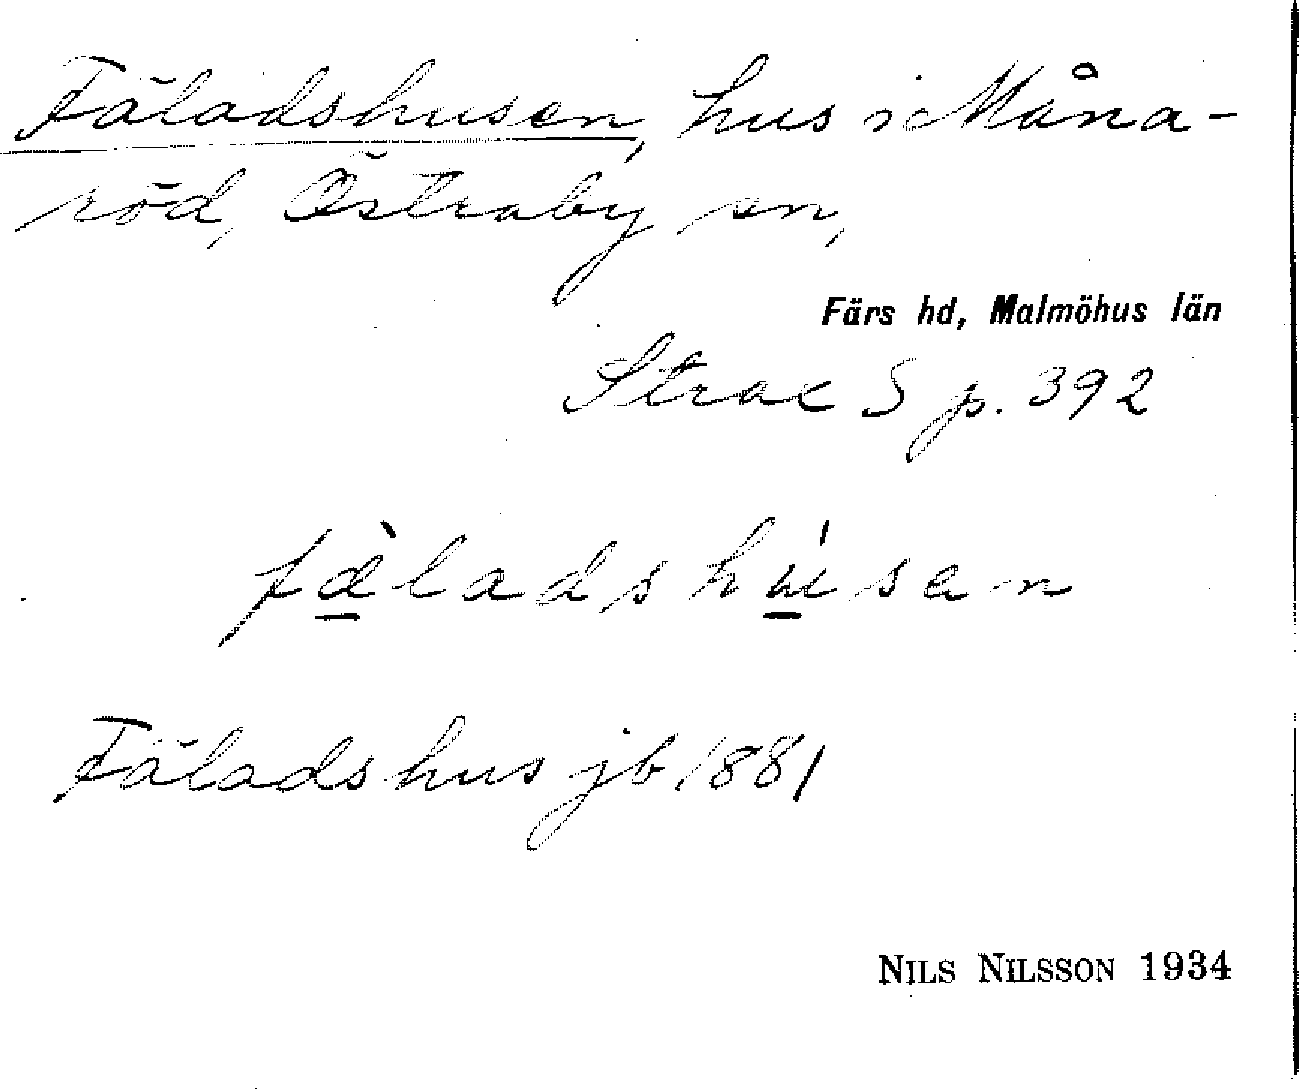 Fäladshusen, hus i Måna-
röd, Östraby sn,
Färs hd, Malmöhus län
Strax S p. 392
fàladshúsen
Fäladshus jb 1881
NILS NILSSON 1934